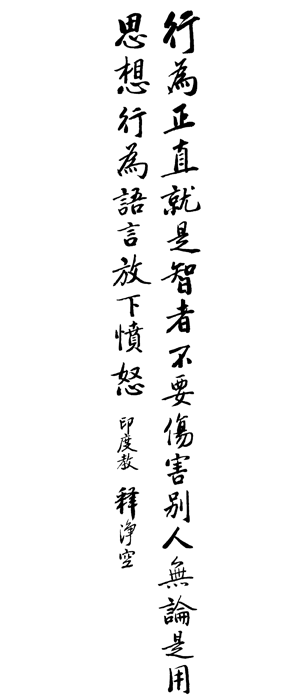 行為正直就是智者不要傷害別人無論是用
思想行為語言放下憤怒 印度教 釋淨空